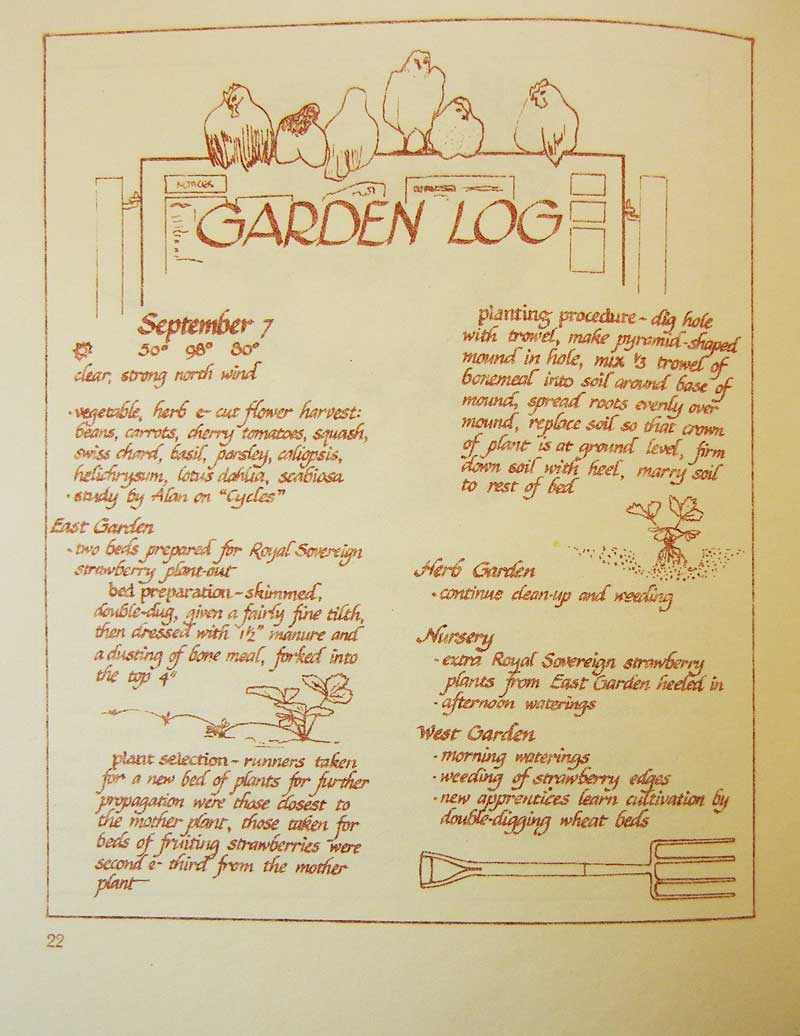 NOTICES
GARDEN LOG
September 7
50° 98° 80°
clear, strong north wind
·vegetable, herb & cut flower harvest:
beans, carrots, cherry tomatoes, squash,
swiss chard, basil, parsley, caliopsis,
helichrysum, lotus dahlia, scabiosa
·study by Alan on "Cycles"
East Garden
·two beds prepared for Royal Sovereign
strawberry plant-out
bed preparation~skimmed,
double-dug, given a fairly fine tilth,
then dressed with 1½" manure and
a dusting of bone meal, forked into
the top 4"
plant selection~ runners taken
for a new bed of plants for further
propagation were those closest to
the mother plant, those taken for
beds of fruiting strawberries were
second & third from the mother
plant
planting procedure~ dig hole
with trowel, make pyramid-shaped
mound in hole, mix ⅓ trowel of
bonemeal into soil around base of
mound, spread roots evenly over
mound, replace soil so that crown
of plant is at ground level, firm
down soil with heel, marry soil
to rest of bed
Herb Garden
·continue clean-up and weeding
Nursery
·extra Royal Sovereign strawberry
plants from East Garden heeled in
·afternoon waterings
West Garden
·morning waterings
·weeding of strawberry edges
·new apprentices learn cultivation by
double-digging wheat beds
22